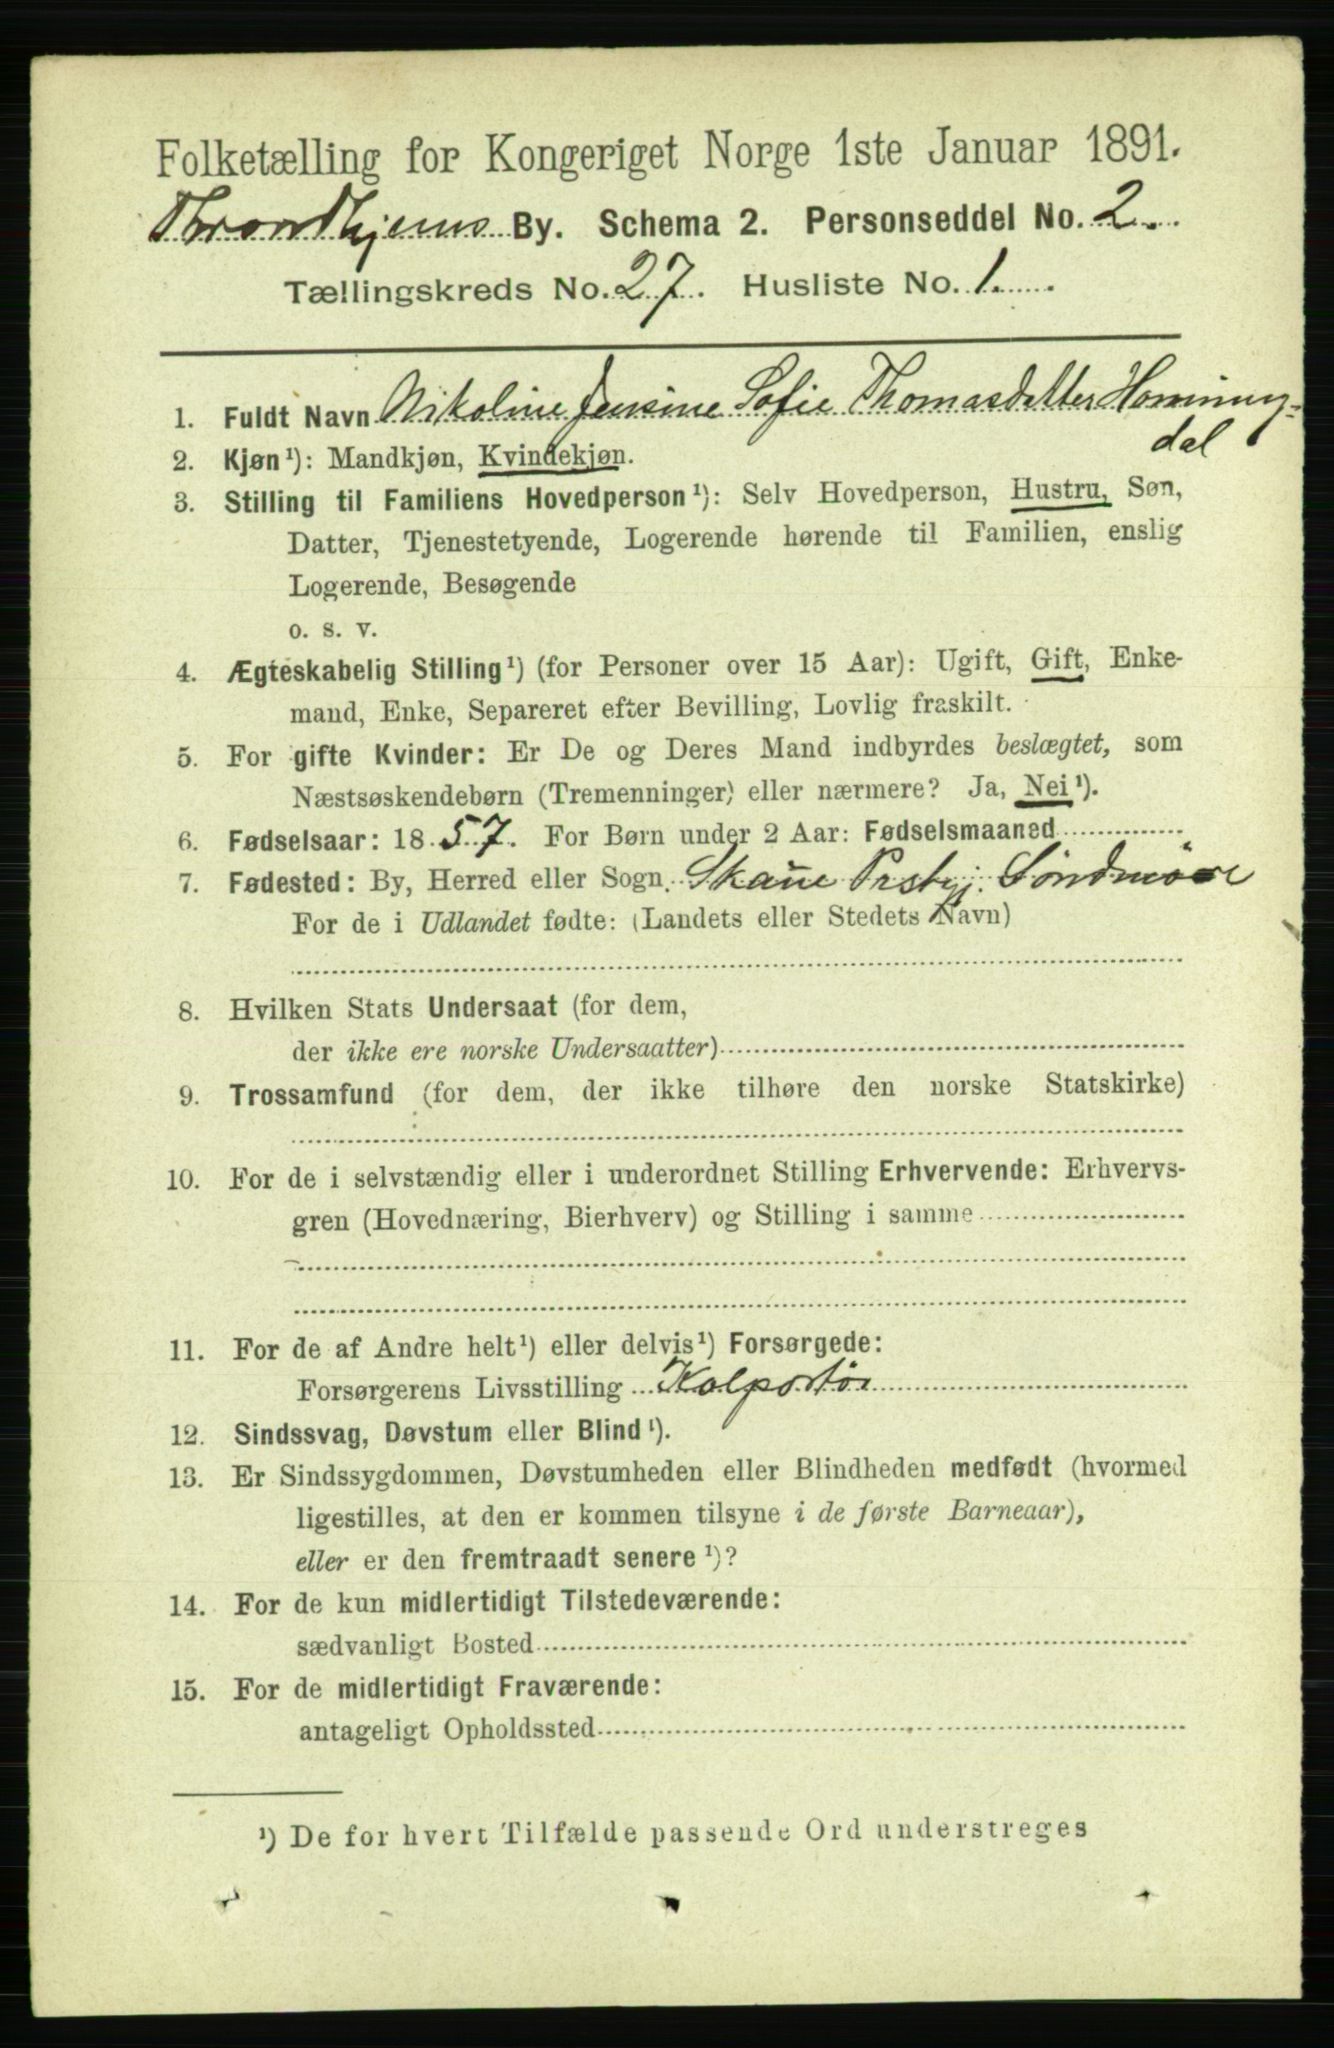 Folketælling for Kongeriget Norge 1ste Januar 1891.
Throndhjems By. Schema 2. Personseddel No. 2.
Tællingskreds No. 27. Husliste No. 1.
1. Fuldt Navn Nikoline Jensine Sofie Thomasdatter Horning=
dal
2. Kjøn¹): Mandkjøn, Kvindekjøn.
3. Stilling til Familiens Hovedperson¹): Selv Hovedperson, Hustru, Søn,
Datter, Tjenestetyende, Logerende hørende til Familien, enslig
Logerende, Besøgende
o. s. v.
4. Ægteskabelig Stilling¹) (for Personer over 15 Aar): Ugift, Gift, Enke-
mand, Enke, Separeret efter Bevilling, Lovlig fraskilt.
5. For gifte Kvinder: Er De og Deres Mand indbyrdes beslægtet, som
Næstsøskendebørn (Tremenninger) eller nærmere? Ja, Nei¹).
6. Fødselsaar: 1857. For Børn under 2 Aar: Fødselsmaaned
7. Fødested: By, Herred eller Sogn. Skaue Prstgj. Søndmøre
For de i Udlandet fødte: (Landets eller Stedets Navn)
8. Hvilken Stats Undersaat (for dem,
der ikke ere norske Undersaatter)
9. Trossamfund (for dem, der ikke tilhøre den norske Statskirke)
10. For de i selvstændig eller i underordnet Stilling Erhvervende: Erhvervs-
gren (Hovednæring, Bierhverv) og Stilling i samme
11. For de af Andre helt¹) eller delvis¹) Forsørgede:
Forsørgerens Livsstilling Kolportør
12. Sindssvag, Døvstum eller Blind¹).
13. Er Sindssygdommen, Døvstumheden eller Blindheden medfødt (hvormed
ligestilles, at den er kommen tilsyne i de første Barneaar),
eller er den fremtraadt senere¹)?
14. For de kun midlertidigt Tilstedeværende:
sædvanligt Bosted
15. For de midlertidigt Fraværende:
antageligt Opholdssted
¹) De for hvert Tilfælde passende Ord understreges